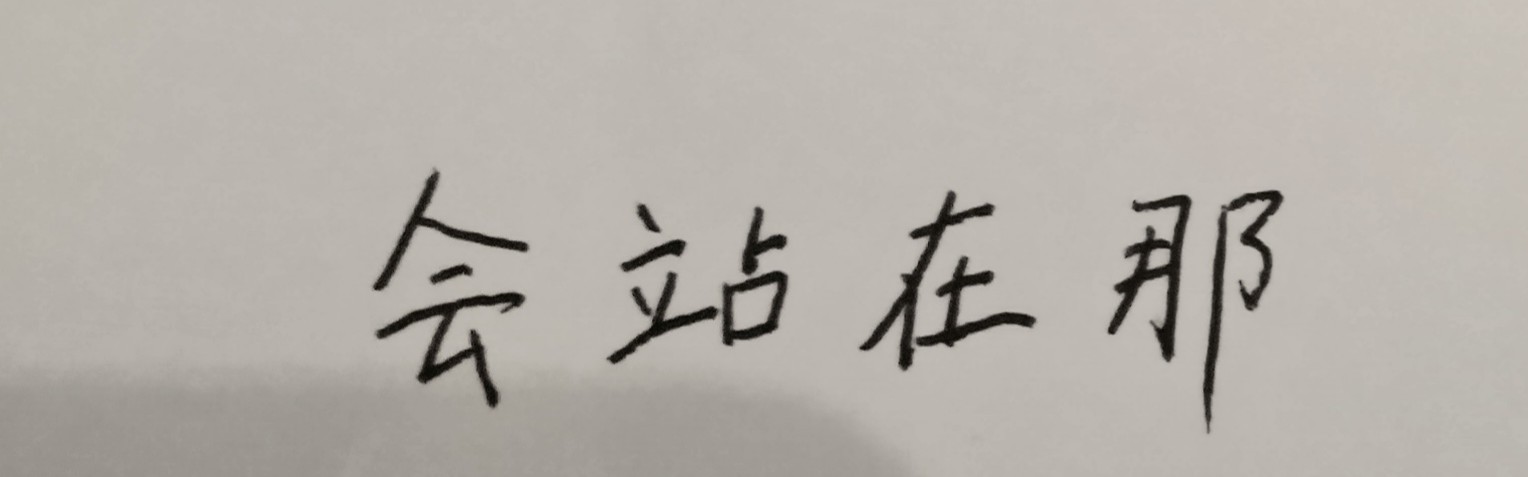 会站在那